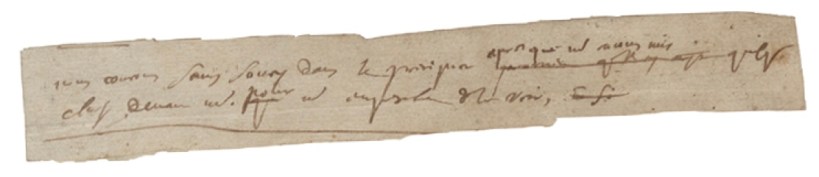 nous courons sans soucy dans le precipice apres que ns avons mis quelq
chose devant ns. pour ns empescher de le voir,